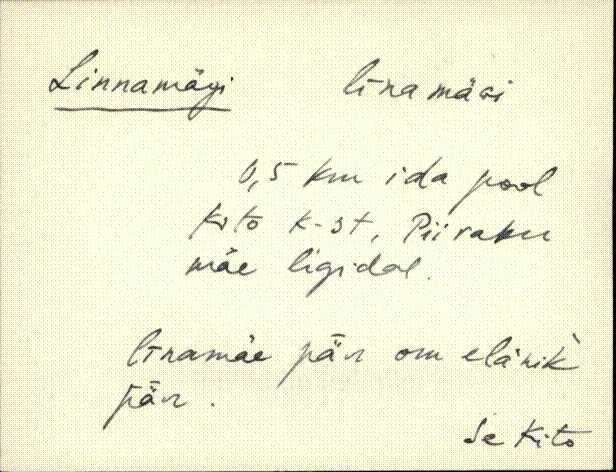 Linnamägi līnamäӡi
0,5 km ida pool
Kito k-st, Piiraku
mäe ligidal.
līnamäe pǟl om elänik̀
pǟl.
Se Kito